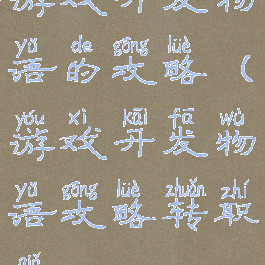 游戏开发物
yǔ de gōng lüè
语的攻略(
yóu xì kāi fā wù
游戏开发物
yǔ gōng lüè zhuǎn zhí
语攻略转职